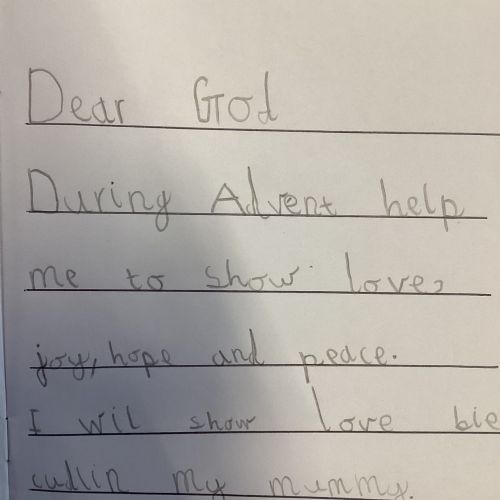 Dear God
During Advent help
me to show love,
joy, hope and peace.
I wil show love bie
cudlin my mummy.